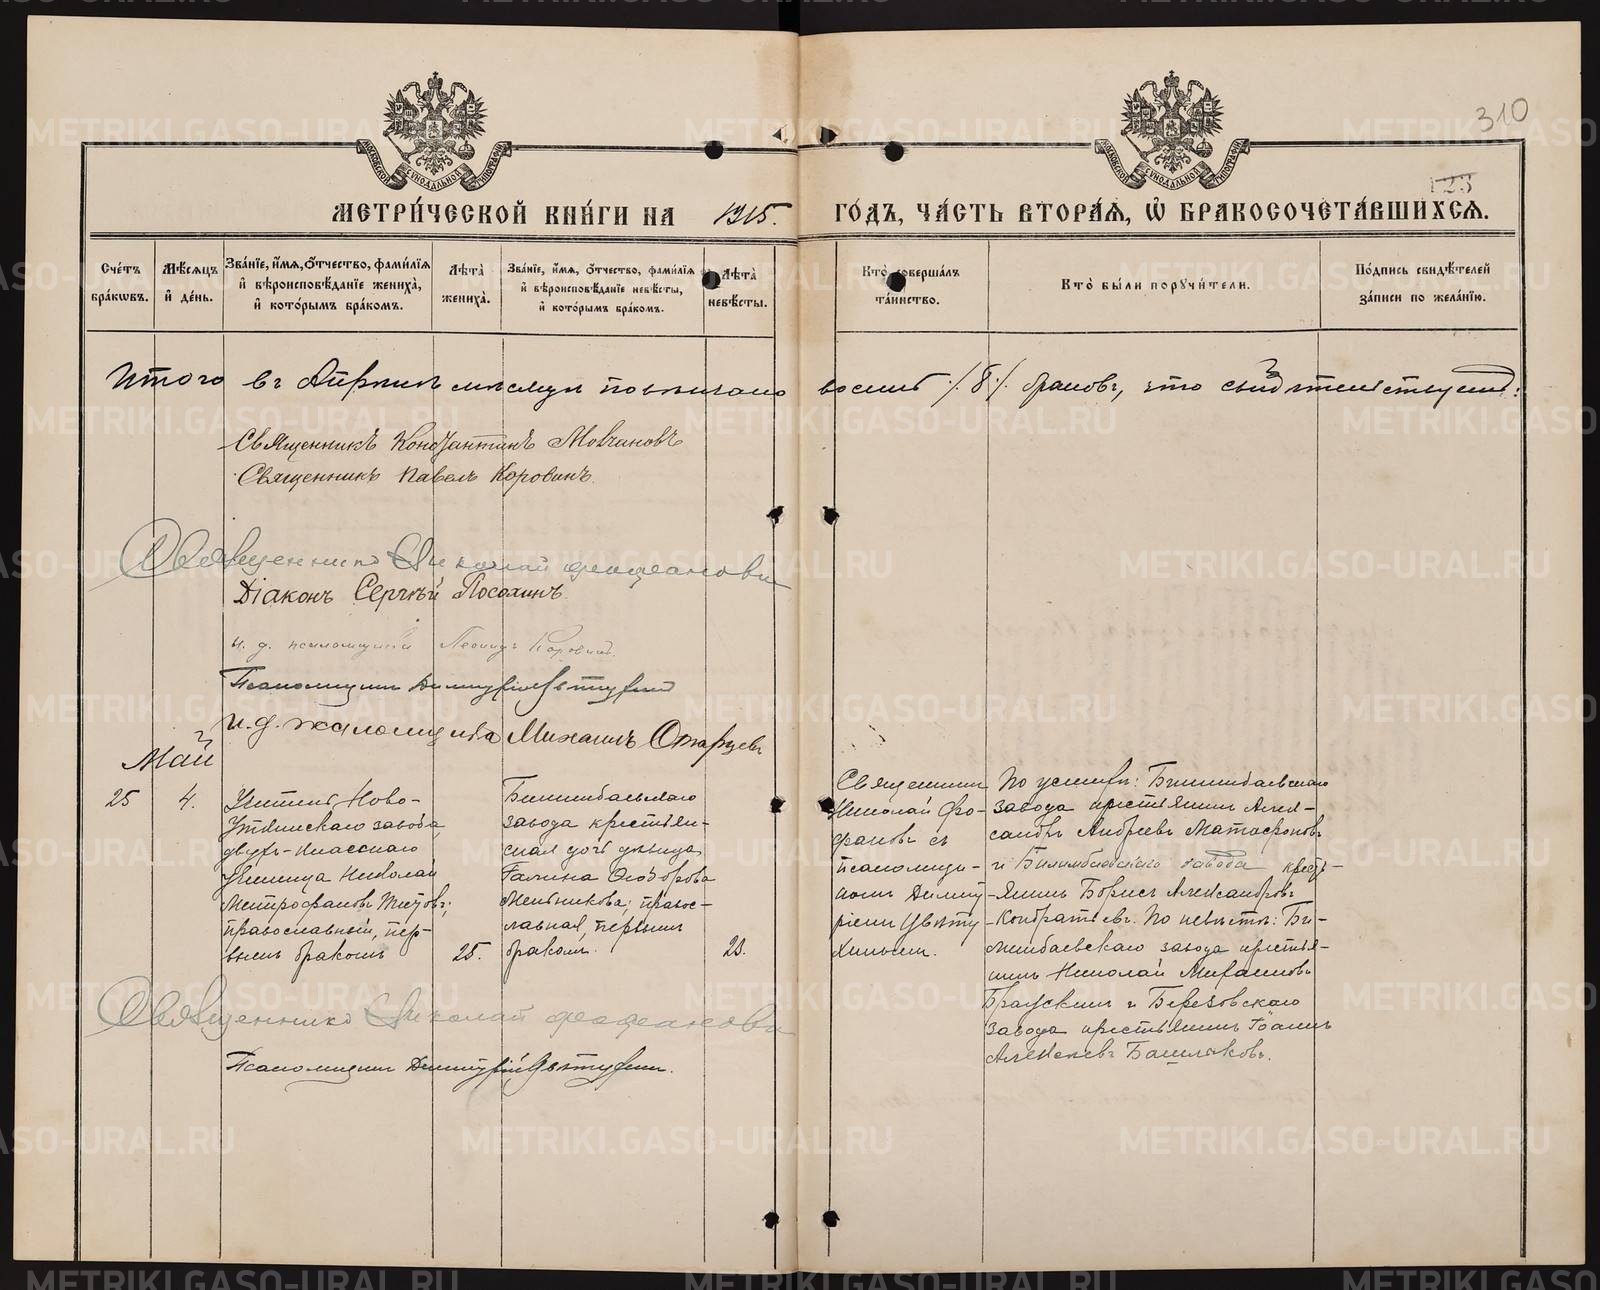 310
123
МОСКОВСКОЙ СѴНОДАЛЬНОЙ ТИПОГРАФІИ
МОСКОВСКОЙ СѴНОДАЛЬНОЙ ТИПОГРАФІИ
МЕТРИ́ЧЕСКОЙ КНИ́ГИ НА 1915. ГО́ДЪ, ЧА́СТЬ ВТОРА́Я, Ѡ БРАКОСОЧЕТА́ВШИХСЯ.
Сче́тъ бра́кѡвъ.
Мѣ́сяцъ и҆ де́нь.
Зва́нїе, и҆́мя, ѻ҆́тчество, фами́лїя и҆ вѣроисповѣ́данїе жениха̀, и҆ кото́рымъ бра́комъ.
Лѣ́та̀ жениха̀.
Зва́нїе, и҆́мя, ѻ҆́тчество, фами́лїя и҆ вѣроисповѣ́данїе невѣ́сты, и҆ кото́рымъ бра́комъ.
Лѣ́та̀ невѣ́сты.
Кто̀ соверша́лъ та́инство.
Кто̀ бы́ли порꙋчи́тели.
По́дпись свидѣ́телей за́писи по жела́нїю.
Итого въ Апрѣлѣ мѣсяцѣ повѣнчано восемь /8/ браковъ, что свидѣтельствуемъ:
Священникъ Константинъ Мовчановъ
Священникъ Павелъ Коровинъ.
Священникъ Николай Фофановъ
Діаконъ Сергѣй Посохинъ
и. д. псаломщика Леонидъ Коровинъ.
Псаломщикъ Димитрій Цвѣтухинъ
и. д. псаломщика Михаилъ Старцевъ
Май
25
4.
Учитель Ново-
Уткинскаго завода
двухъ-класснаго
училища Николай
Митрофановъ Титовъ;
православный, пер-
вымъ бракомъ
25.
Билимбаевскаго
завода крестьян-
ская дочь дѣвица
Галина Ѳеодорова
Мельникова; правос-
лавная, первымъ
бракомъ.
23.
Священникъ
Николай Фо-
фановъ съ
псаломщи-
комъ Димит-
ріемъ Цвѣту-
хинымъ.
По женихѣ: Билимбаевскаго
завода крестьянинъ Алек-
сандръ Андреевъ Матафоновъ
и Билимбаевскаго завода крестъ-
янинъ Борисъ Александровъ
Кондратьевъ. По невѣстѣ: Би-
лимбаевскаго завода крестья-
нинъ Николай
и Березовскаго
завода крестьянинъ Іоаннъ
Алексѣевъ Башлаковъ.
Священникъ Николай Фофановъ
Псаломщикъ Димитрій Цвѣтухинъ.
METRIKI.GASO-URAL.RU